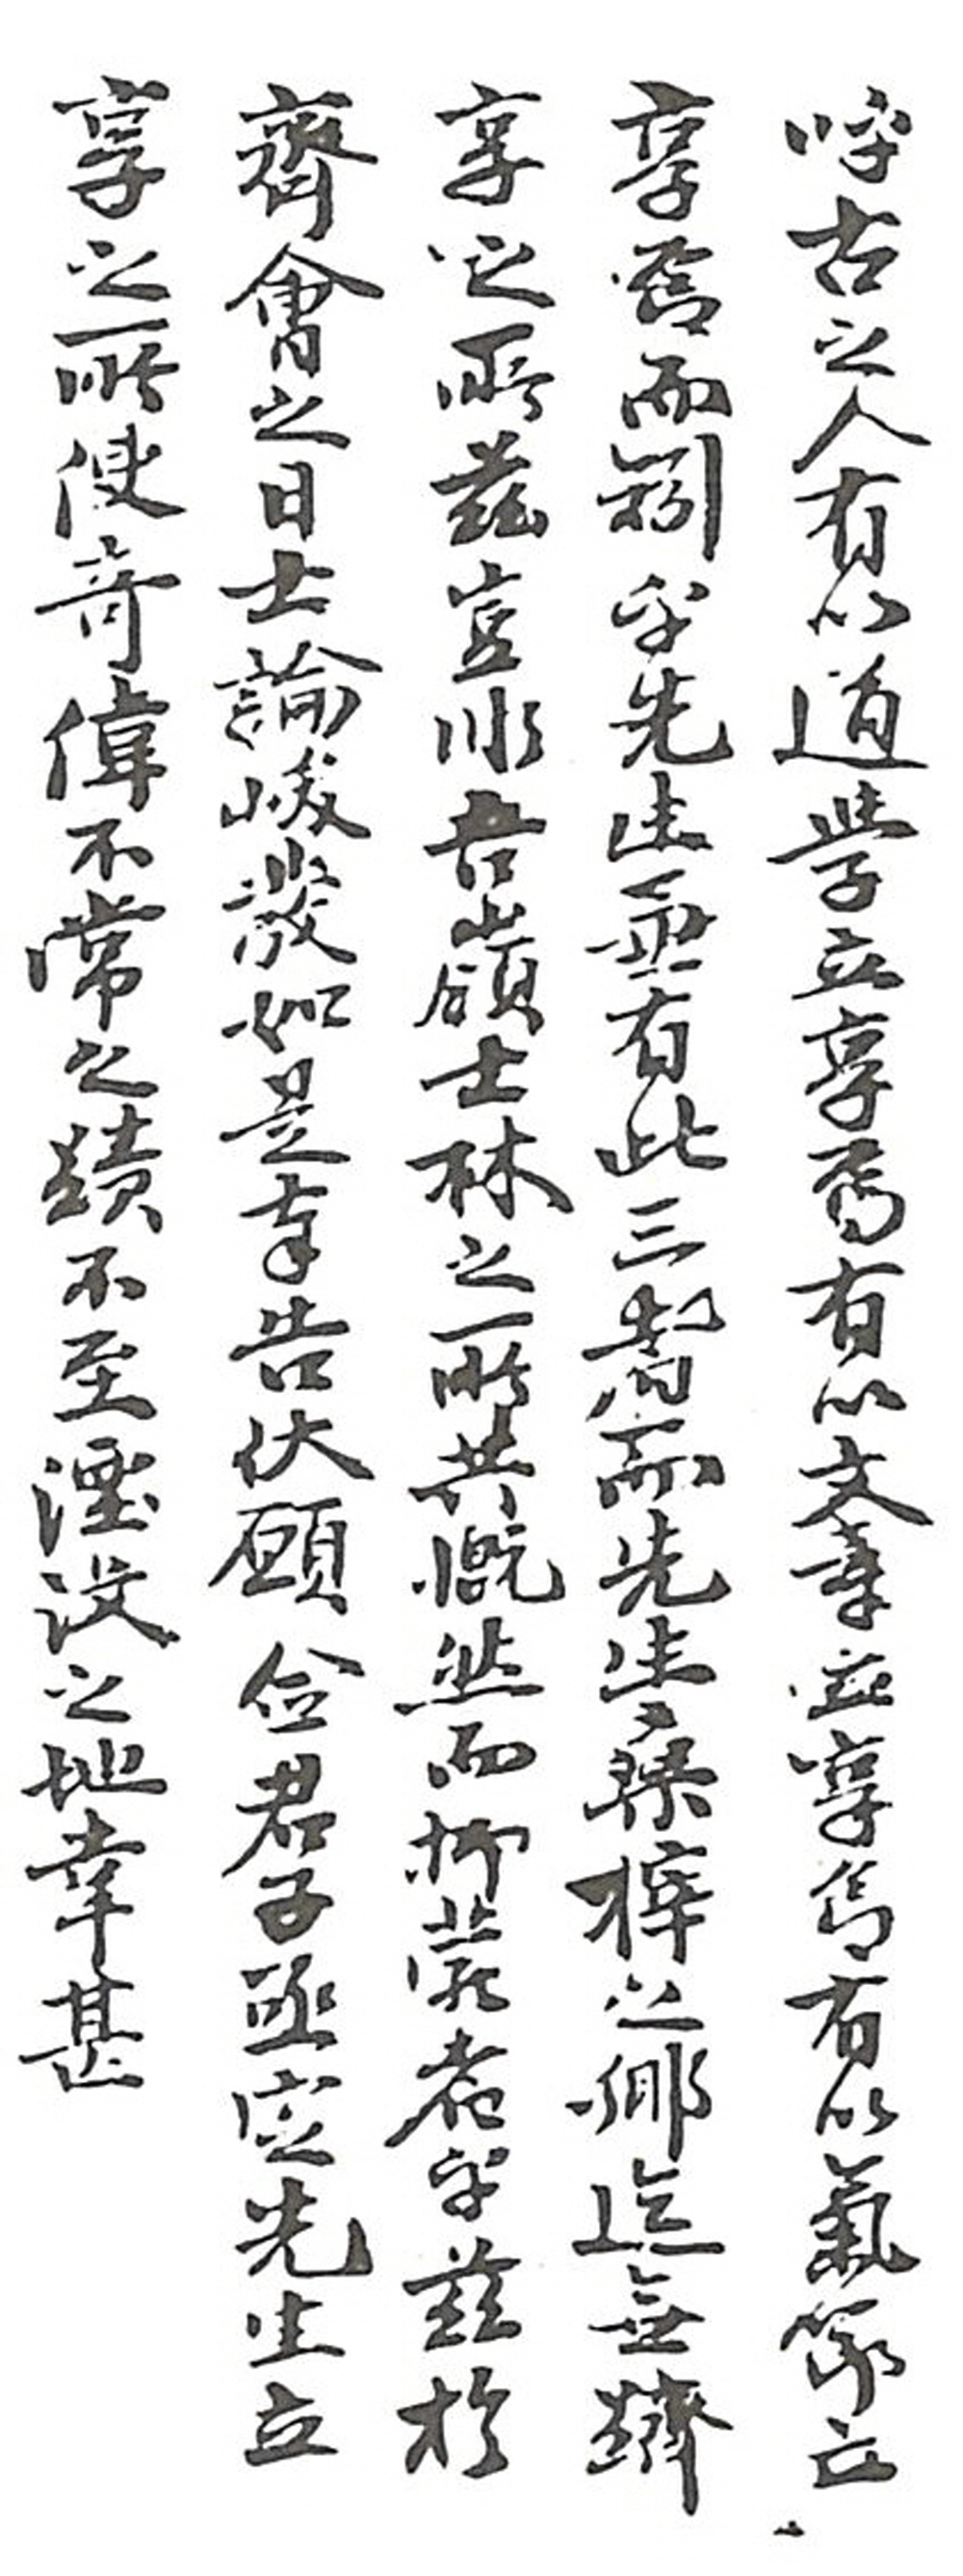 呼古之人有以道學立享焉有以文章並享焉有以氣節立
享焉而矧乎先生並有此三者而先生桑梓之鄕迄無躋
享之所玆豈非吾嶺士林之所共慨然而抑菀者乎玆於
齊會之日士論峻發如是奉告伏願僉君子亟定先生立
享之所使奇偉不常之蹟不至湮沒之地幸甚